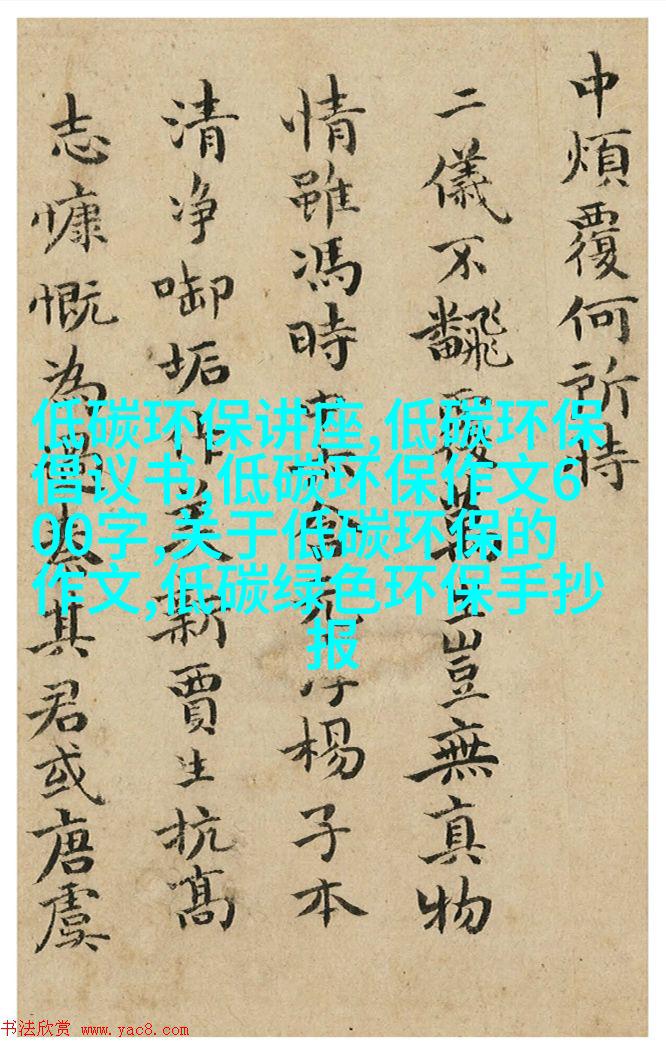 中煩覆何所恃
二儀不飜覆生豈無真物
情雖馮時會楊子本
清净啣垢作美新賈生抗髙
志慷慨為奏其君或唐虞
低碳环保讲座,低碳环保
倡议书,低碳环保作文6
00字,关于低碳环保的
作文,低碳绿色环保手抄
报
书法欣赏 www.yac8.com